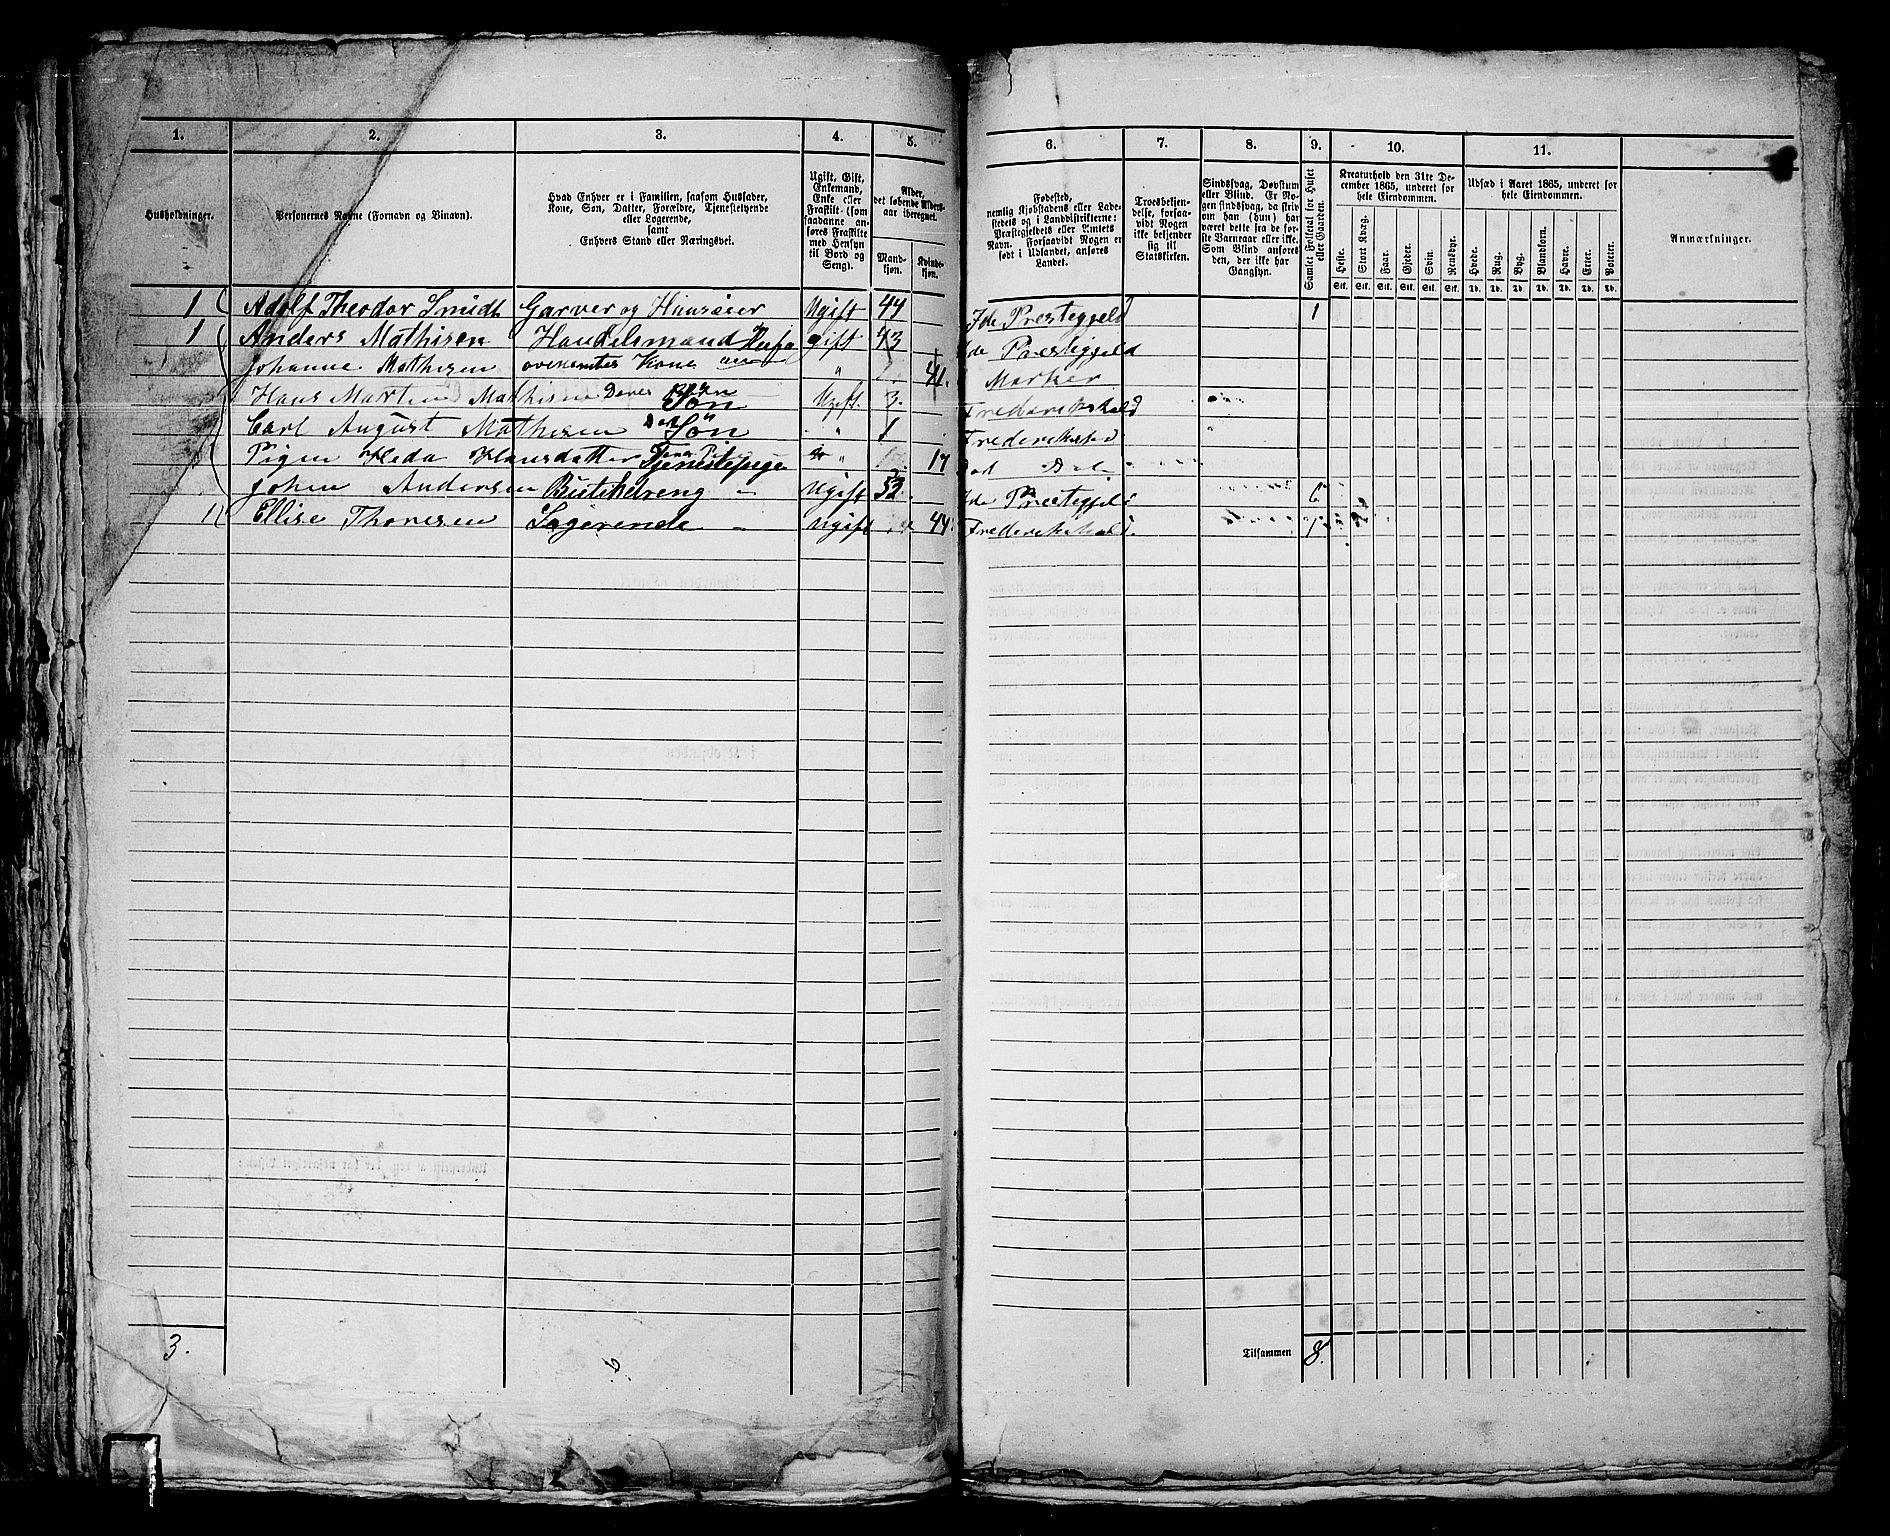 1. 2. 3. 4. 5. 6. 7. 8. 9. 10. 11.
Husholdninger.
Personernes Navne (Fornavn og Binavn).
Hvad Enhver er i Familien, saasom Husfader,
Kone, Søn, Datter, Forældre, Tjenestetyende
eller Logerende,
samt
Enhvers Stand eller Næringsvei.
Ugift, Gift,
Enkemand,
Enke eller
Fraskilt (som
saadanne an-
føres Fraskilte
med Hensyn
til Bord og
Seng).
Alder,
det løbende Alders-
aar iberegnet.
Mand-
kjøn.
Kvinde-
kjøn.
Fødested,
nemlig Kjøbstadens eller Lade-
stedets og i Landdistrikterne:
Præstegjeldets eller Amtets
Navn. Forsaavidt Nogen er
født i Udlandet, anføres
Landet.
Troesbekjen-
delse, forsaa-
vidt Nogen
ikke bekjender
sig til
Statskirken.
Sindssvag, Døvstum
eller Blind. Er No-
gen sindssvag, da skriv
om han (hun) har
været dette fra de før-
ste Barneaar eller ikke.
Som Blind anføres
den, der ikke har
Gangsyn.
Samlet Folketal for Huset
eller Gaarden.
Kreaturhold den 31te De-
cember 1865, underet for
hele Eiendommen.
Heste. Stort Kvæg. Faar. Gjeder. Svin. Rensdyr.
Stk. Stk. Stk. Stk. Stk. Stk.
Udsæd i Aaret 1865, underet for
hele Eiendommen.
Hvede. Rug. Byg. Blandkorn. Havre. Erter. Poteter.
Td. Td. Td. Td. Td. Td. Td.
Anmærkninger.
1 Adolf Theodor Smidt Garver og Huuseier Ugift 44 Ide Prestegjeld 1
1 Anders Mathisen Handelsmand gift 43 Ide Prestegjeld
Johanne Mathisen ovenemtes Kone " 41. Marker
Hans Martin Mathisen Deres Søn Ugift. 3. Frederikshald
Carl August Mathisen Søn " 1 Frederikshald
Pigen Heda Hansdatter Tjenestepige " 17
Johan Andersen Butikdreng Ugift Ide Prestegjeld 6
1 Ellise Thoresen Logerende Ugift 44 Frederikshald. 1
3.
Tilsammen 8.